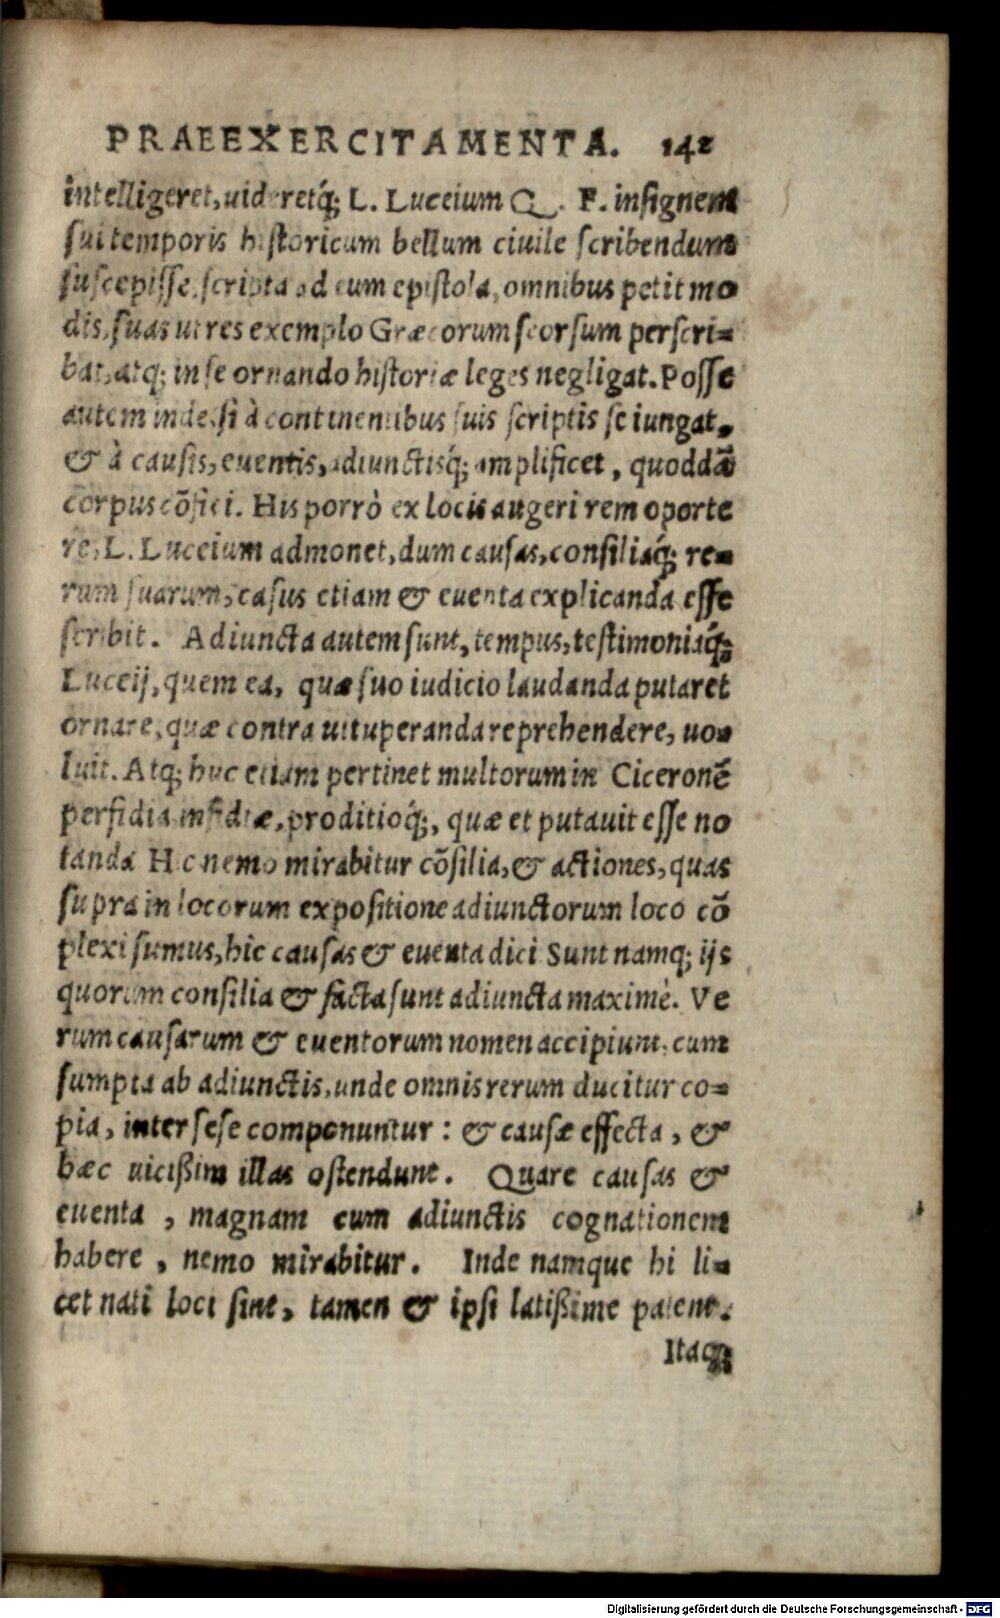 PRAEEXERCITAMENTA. 142
intelligeret, uideretq́; L. Luceium Q. F. insignem
sui temporis historicum bellum ciuile scribendum
suscepisse, scripta ad eum epistola, omnibus petit mo
dis, suas ut res exemplo Græcorum seorsum perscri-
bat, atq; in se ornando historiæ leges negligat. Posse
autem inde, si à continentibus suis scriptis seiungat,
& à causis, euentis, adiunctisq́; amplificet, quoddã
corpus cõfici. His porrò ex locis augeri rem oporte
re, L. Lucceium admonet, dum causas, consiliaq́; re-
rum suarum, casus etiam & euenta explicanda esse
scribit. Adiuncta autem sunt, tempus, testimoniaq́;
Lucceij, quem ea, quæ suo iudicio laudanda putaret
ornare, quæ contra uituperanda reprehendere, uo-
luit. Atq; huc etiam pertinet multorum in Ciceronẽ
perfidia insidiæ, proditioq́;, quæ et putauit esse no
tanda Hic nemo mirabitur cõsilia, & actiones, quas
supra in locorum expositione adiunctorum loco cõ
plexi sumus, hic causas & euenta dici Sunt namq; ijs
quorum consilia & facta sunt adiuncta maximè. Ve
rum causarum & euentorum nomen accipiunt, cum
sumpta ab adiunctis, unde omnis rerum ducitur co-
pia, inter sese componuntur : & causæ effecta, &
hæc uicißim illas ostendunt. Quare causas &
euenta, magnam cum adiunctis cognationem
habere, nemo mirabitur. Inde namque hi li-
cet nati loci sint, tamen & ipsi latißime patent.
Itaq;
Digitalisierung gefördert durch die Deutsche Forschungsgemeinschaft - DFG